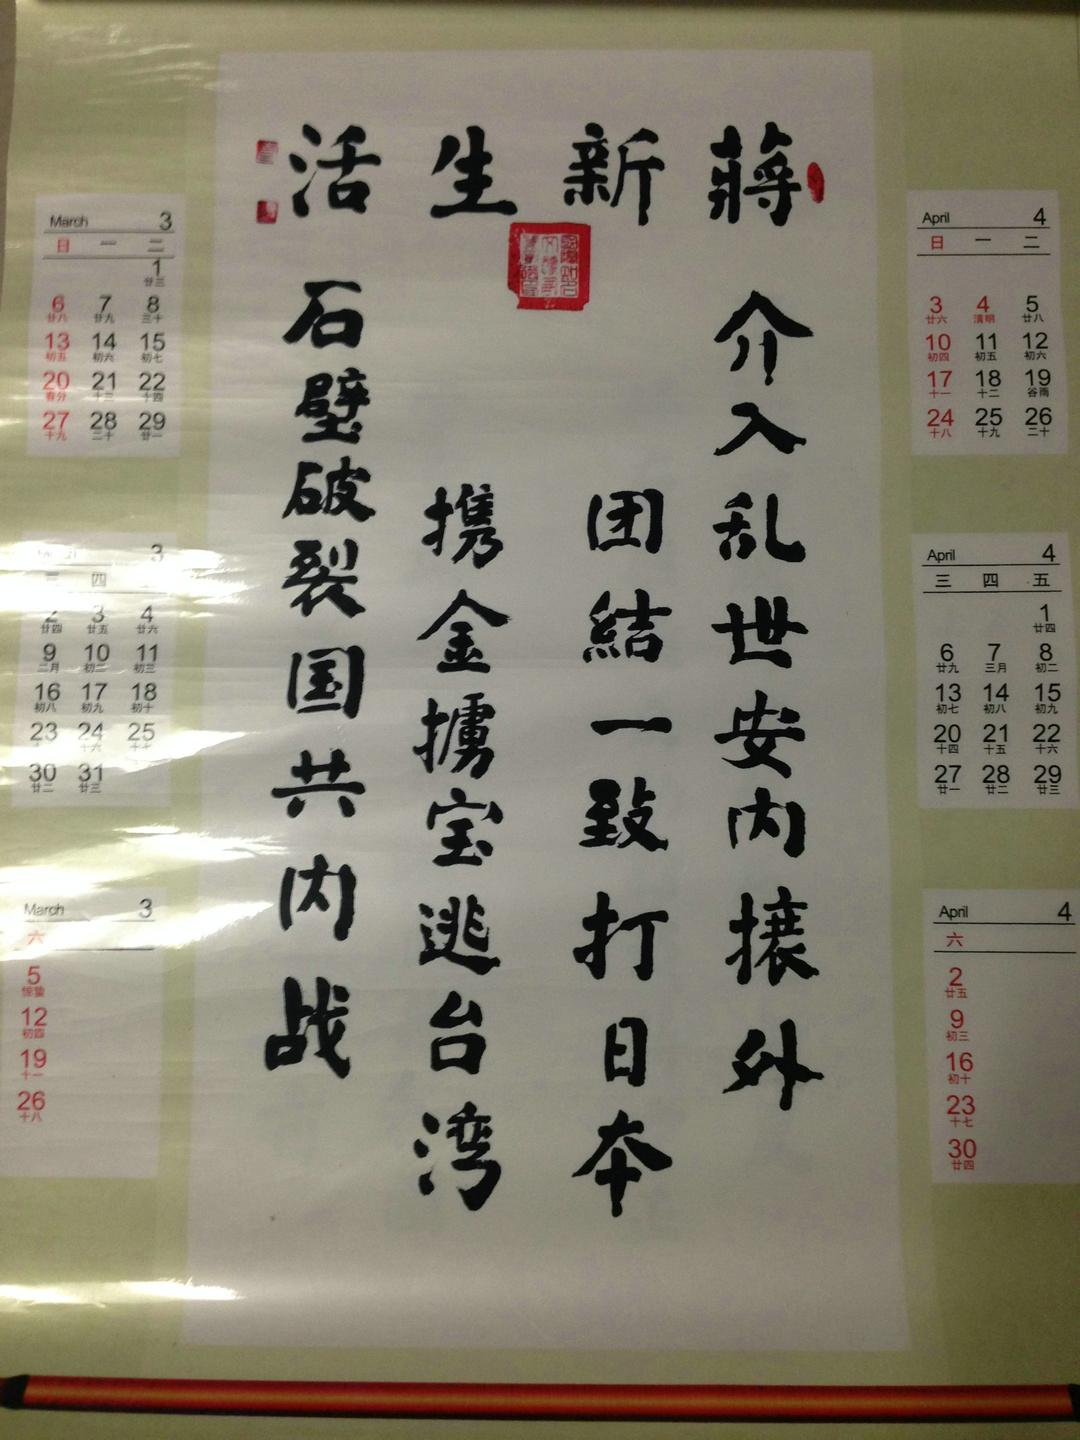 蔣新生活
介入乱世安内攘外
团結一致打日本
携金擄宝逃台湾
石壁破裂国共内战
March 3
日 一 二
1
廿三
6 7 8
廿八 廿九 三十
13 14 15
初五 初六 初七
20 21 22
春分 十三 十四
27 28 29
十九 二十 廿一
3
三 四
2 3 4
廿四 廿五 廿六
9 10 11
二月 初二 初三
16 17 18
初八 初九 初十
23 24 25
十六 十七
30 31
廿二 廿三
March 3
六
5
惊蛰
12
初四
19
十一
26
十八
April 4
日 一 二
3 4 5
廿六 清明 廿八
10 11 12
初四 初五 初六
17 18 19
十一 十二 谷雨
24 25 26
十八 十九 二十
April 4
三 四 五
1
廿四
6 7 8
廿九 三月 初二
13 14 15
初七 初八 初九
20 21 22
十四 十五 十六
27 28 29
廿一 廿二 廿三
April 4
六
2
廿五
9
初三
16
初十
23
十七
30
廿四